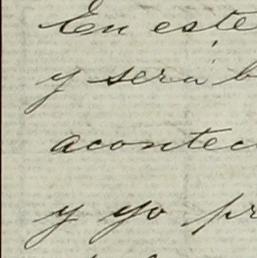 En este
y será b
acontec
y yo pr